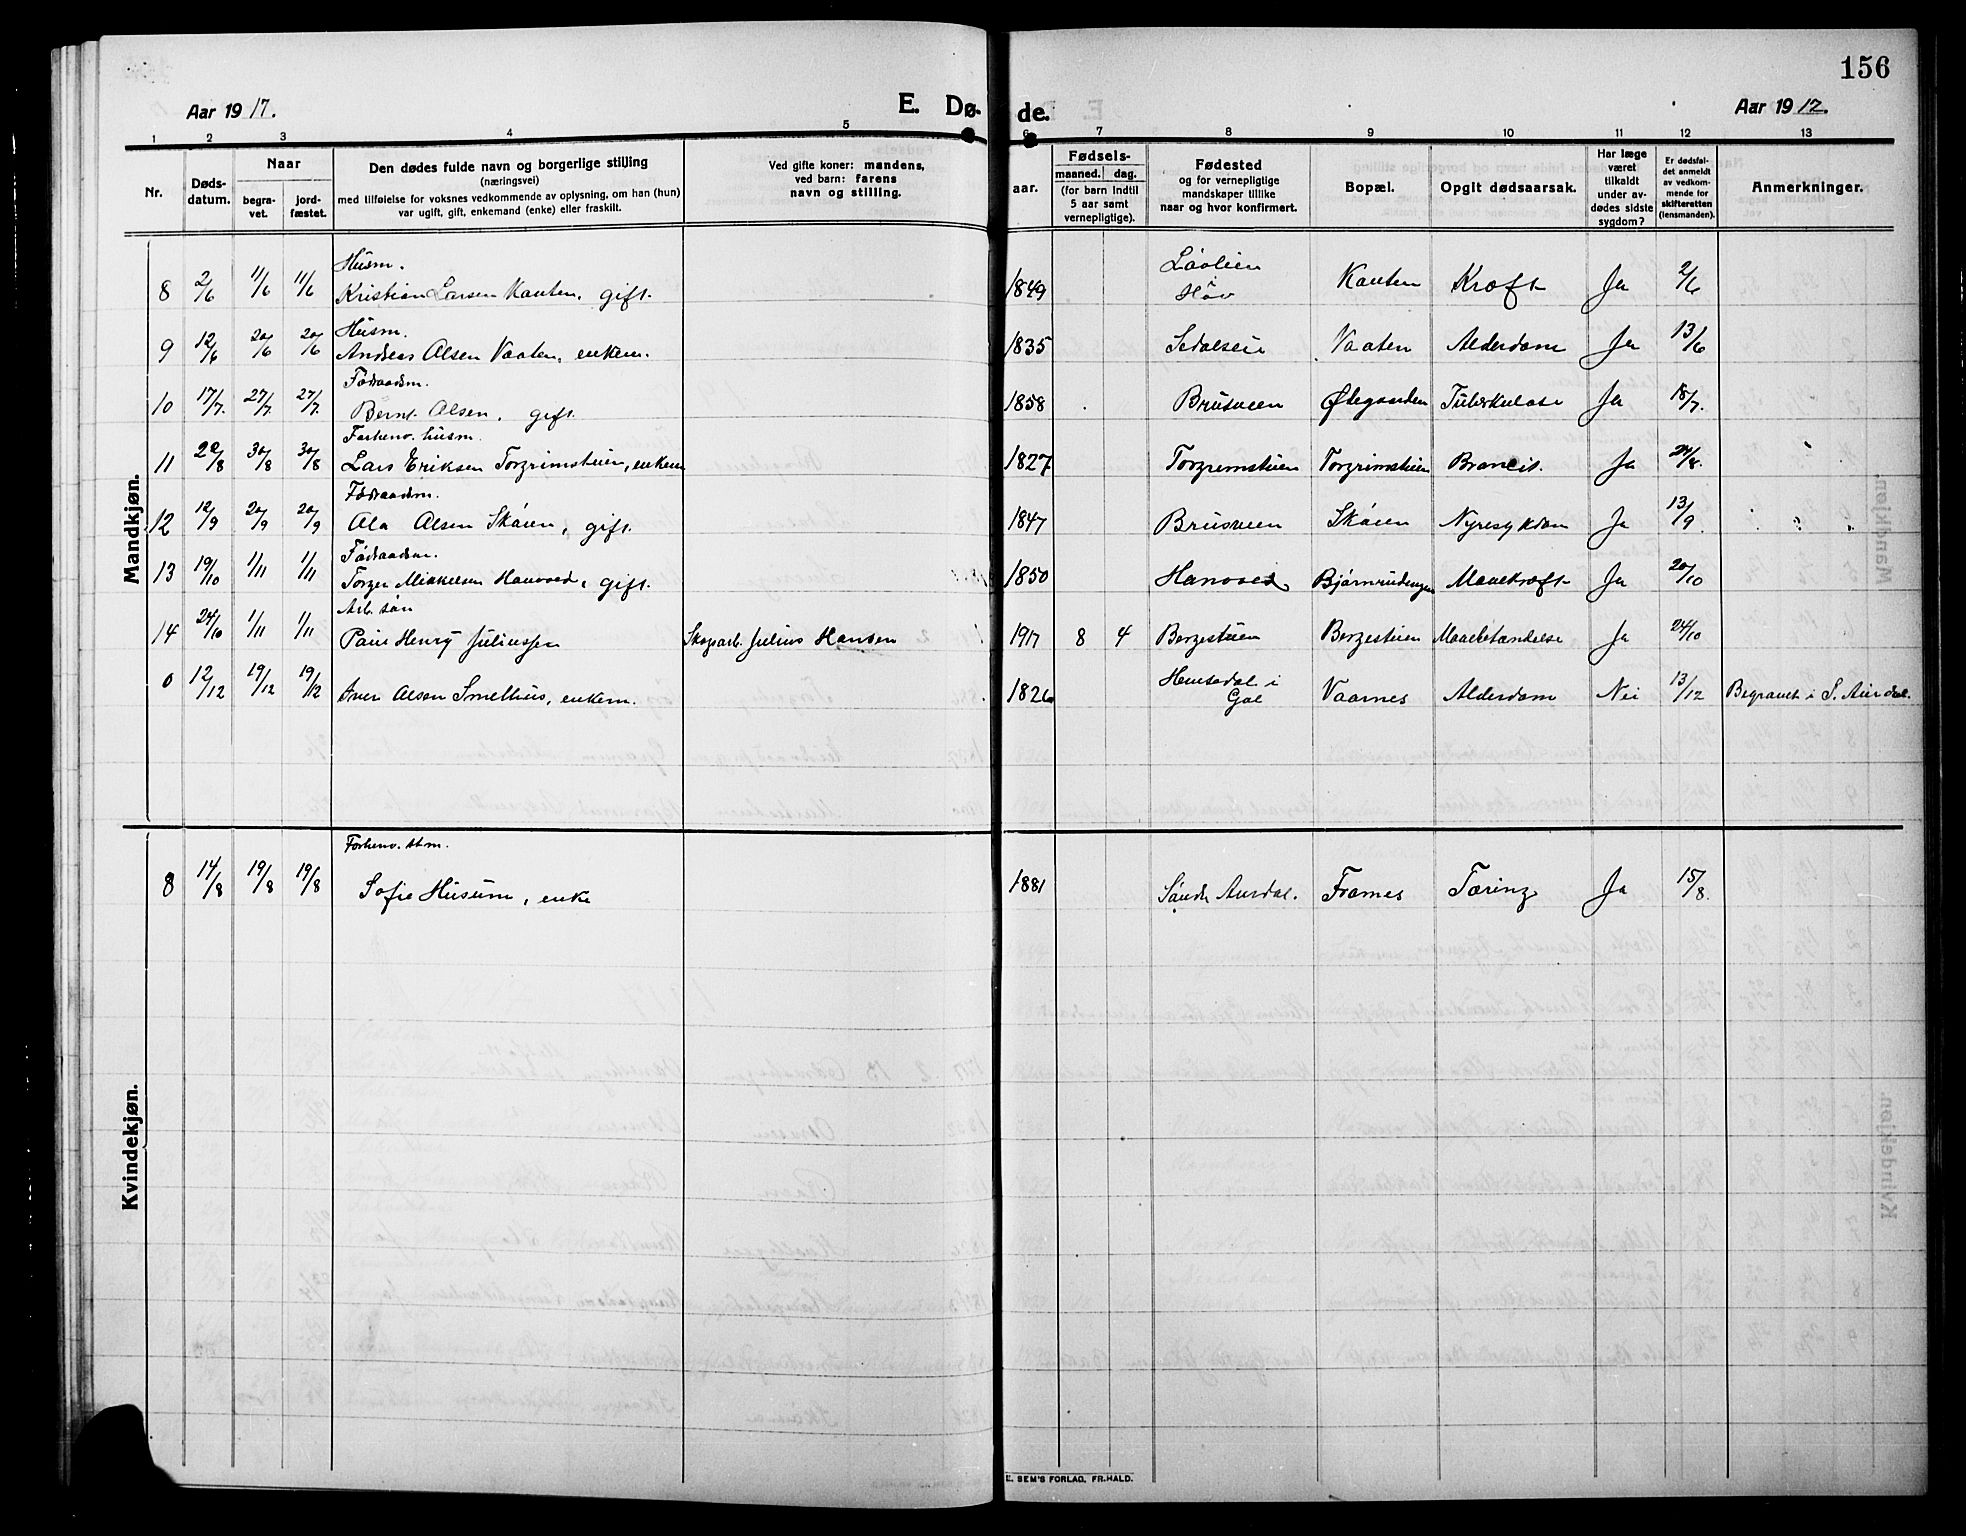 156
Aar 1917.
E. Dø-
de.
Aar 1917.
1 2 3 4 5 6 7 8 9 10 11 12 13
Nr.
Døds-
datum.
Naar
begra-
vet.
jord-
fæstet.
Den dødes fulde navn og borgerlige stilling
(næringsvei)
med tilføielse for voksnes vedkommende av oplysning, om han (hun)
var ugift, gift, enkemand (enke) eller fraskilt.
Ved gifte koner: mandens,
ved barn: farens
navn og stilling.
aar.
Fødsels-
maaned. dag.
(for barn indtil
5 aar samt
vernepligtige).
Fødested
og for vernepligtige
mandskaper tillike
naar og hvor konfirmert.
Bopæl.
Opgit dødsaarsak.
Har læge
været
tilkaldt
under av-
dødes sidste
sygdom?
Er dødsfal-
det anmeldt
av vedkom-
mende for
skifteretten
(lensmanden).
Anmerkninger.
Mandkjøn.
Husm.
8 2/6 11/6 11/6 Kristian Larsen Kauten, gift. 1849 Løvlien Høv Kauten Kræft Ja 2/6
Husm.
9 12/6 20/6 20/6 Andreas Olsen Vaaten, enkem. 1835 Vaaten Alderdom Ja 13/6
Føderaadsm.
10 17/7. 27/7. 27/7. Bernt Olsen, gift. 1858 Brusveen Ødegaarden Tuberkulose Ja 18/7.
Forhenv. husm.
11 20/8 30/8 30/8 Lars Eriksen Torgrimstuen, enkem 1827 Torgrimstuen Torgrimstuen Ja 24/8.
Føderaadsm.
12 12/9 20/9 20/9 Ola Olsen Skøien, gift. 1847 Brusveen Skøien Nyresykdom Ja 13/9
Føderaadsm.
13 19/10 1/11 1/11 Torger Mikkelsen Hanvold, gift. 1850 Bjørnrudengen Mavekræft Ja 20/10
Arb. søn
14 24/10 1/11 1/11 Paul Henry Juliussen Skogsarb. Julius Hansen 1917 8 4 Borgestuen Borgestuen Mavebetændelse Ja 24/10
0 12/12 19/12 19/12 Iver Olsen Smelhus, enkem. 1826 Hemsedal i Gol Vaarnes Alderdom Nei 13/12 Begravet i S. Aurdal.
Kvindekjøn.
Forhenv.
8 14/8 19/8 19/8 Sofie Husum, enke 1881 Søndr Aurdal. Framnes Tæring Ja 15/8.
E. SEM'S FORLAG, FR.HALD.